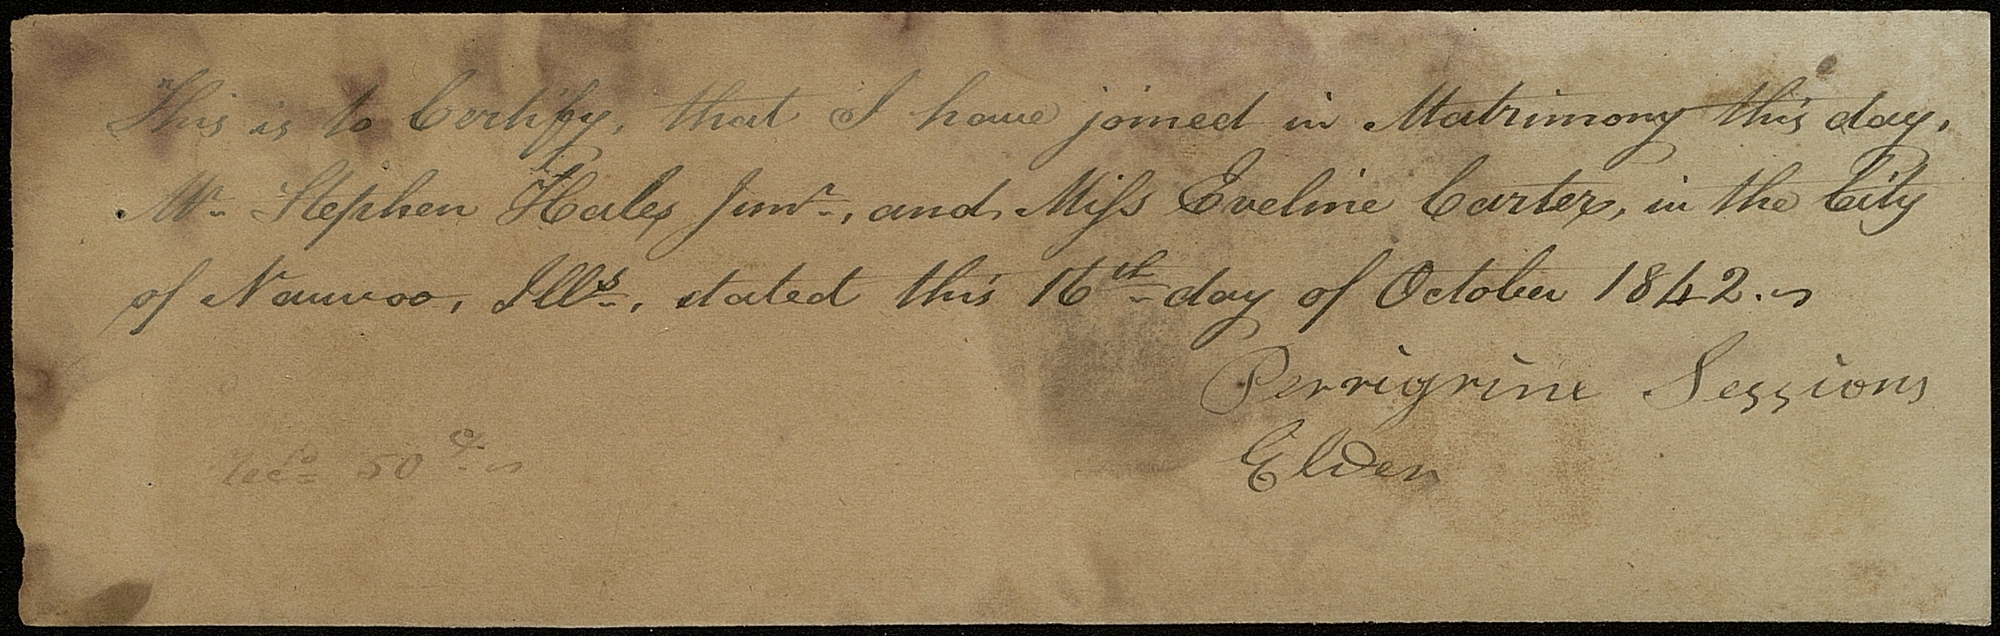 This is to Certify, that I have joined in Matrimony this day,
Mr. Stephen Hales Junr., and Miss Eveline Carter, in the City
of Nauvoo, Ills., stated this 16th day of October 1842.
Perrigrine Sessions
Elder
50